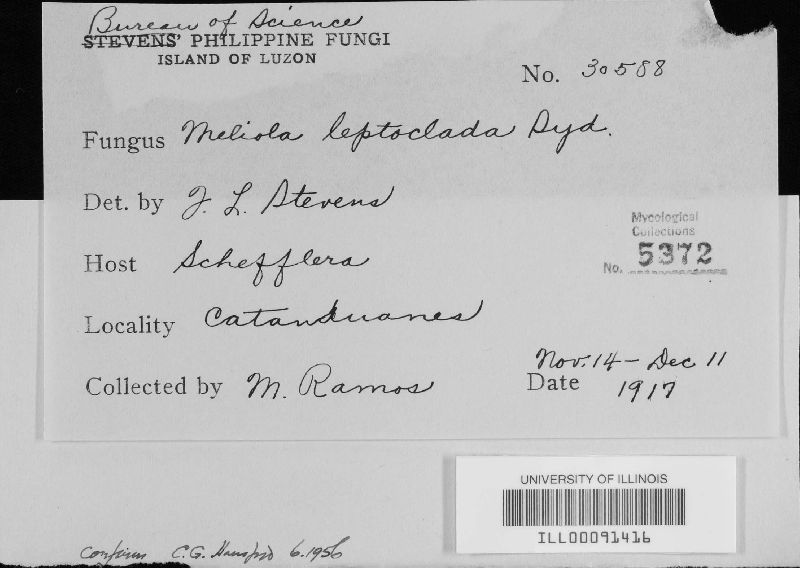 Bureau of Science
STEVENS' PHILIPPINE FUNGI
ISLAND OF LUZON
No. 30588
Fungus Meliola leptoclada Syd.
Det. by F. L. Stevens
Host Schefflera
Mycological
Collections
No. 5372
Locality Catanduanes
Collected by M. Ramos
Nov. 14 - Dec 11
Date 1917
UNIVERSITY OF ILLINOIS
ILL00091416
Confirm C.G. Hansford 6.1956